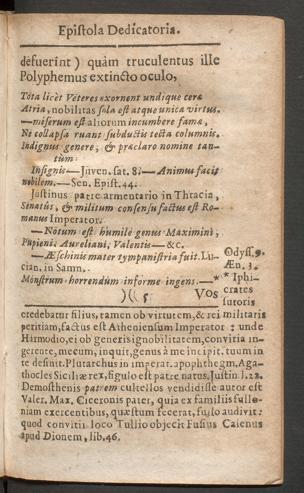 Epistola Dedicatoria.
defuerint) quàm truculentus ille
Polyphemus extincto oculo,
Tota licèt Veteres exornent undique ceræ
Atria, nobilitas sola est atque unica virtus.
—miserum est aliorum incumbere famæ,
Ne collapsa ruant subductis tecta columnis.
Indignus genere, & præclaro nomine tan-
tùm
Insignis—Juven. sat. 8.—Animus facit
nobilem.—Sen. Epist. 44.
Justinus patre armentario in Thracia,
Senatûs, & militum consensu factus est Ro-
manus Imperator.
—Notum est humile genus Maximini,
Pupieni, Aureliani, Valentis—&c.
—Æschinis mater tympanistria fuit. Lu-
cian. in Samn.
Monstrum horrendum informe ingens.—
Odyss. 9.
Æn. 3.
)(( 5 Vos
* Iphi-
crates
sutoris
credebatur filius, tamen ob virtutem, & rei militaris
peritiam, factus est Atheniensum Imperator: unde
Harmodio, ei ob generis ignobilitatem, convitia in-
gerente, mecum, inquit, genus à me incipit, tuum in
te desinit. Plutarchus in imperat. apophthegm. Aga-
thocles Siciliæ rex, figulo est patre natus. Justin. l. 22.
Demosthenis patrem cultellos vendidisse autor est
Valer. Max. Ciceronis pater, quia ex familiis fullo-
niam exercentibus, quæstum fecerat, fullo audivit:
quod convitii loco Tullio objecit Fusius Calenus
apud Dionem, lib. 46.